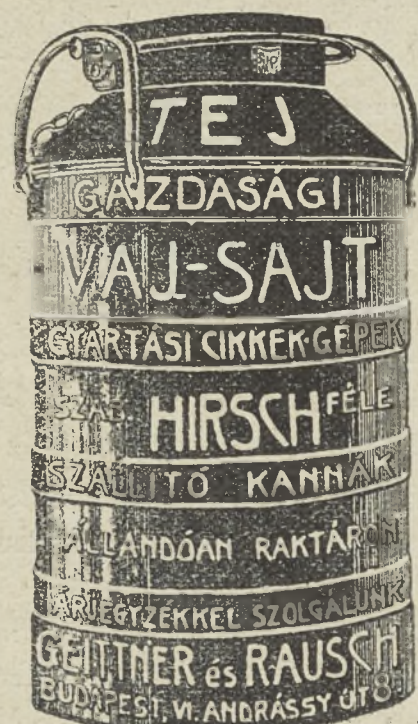 TEJ
GAZDASÁGI
VAJ-SAJT
GYÁRTÁSI CIKKEK-GÉPEK
SZAB. HIRSCH FÉLE
SZÁLLITÓ KANNÁK
ÁLLANDÓAN RAKTÁRON
ÁRJEGYZÉKKEL SZOLGÁLUNK
GEITTNER és RAUSCH
BUDAPEST, VI. ANDRÁSSY ÚT 8